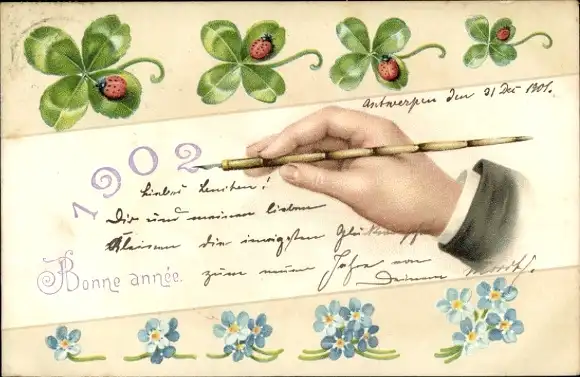 Antwerpen den 31 Dec 1901.
1902
Liebes
Dir und meinen lieben
Kleinen die innigsten
zum neuen Jahre von
Deinem Moritz.
Bonne année.